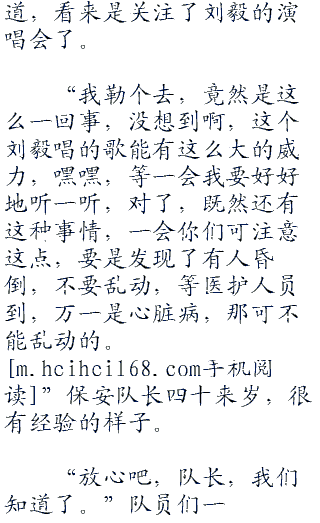 道，看来是关注了刘毅的演
唱会了。
“我勒个去，竟然是这
么一回事，没想到啊，这个
刘毅唱的歌能有这么大的威
力，嘿嘿，等一会我要好好
地听一听，对了，既然还有
这种事情，一会你们可注意
这点，要是发现了有人昏
倒，不要乱动，等医护人员
到，万一是心脏病，那可不
能乱动的。
[m.hcihci168.com手机阅
读]”保安队长四十来岁，很
有经验的样子。
“放心吧，队长，我们
知道了。”队员们一